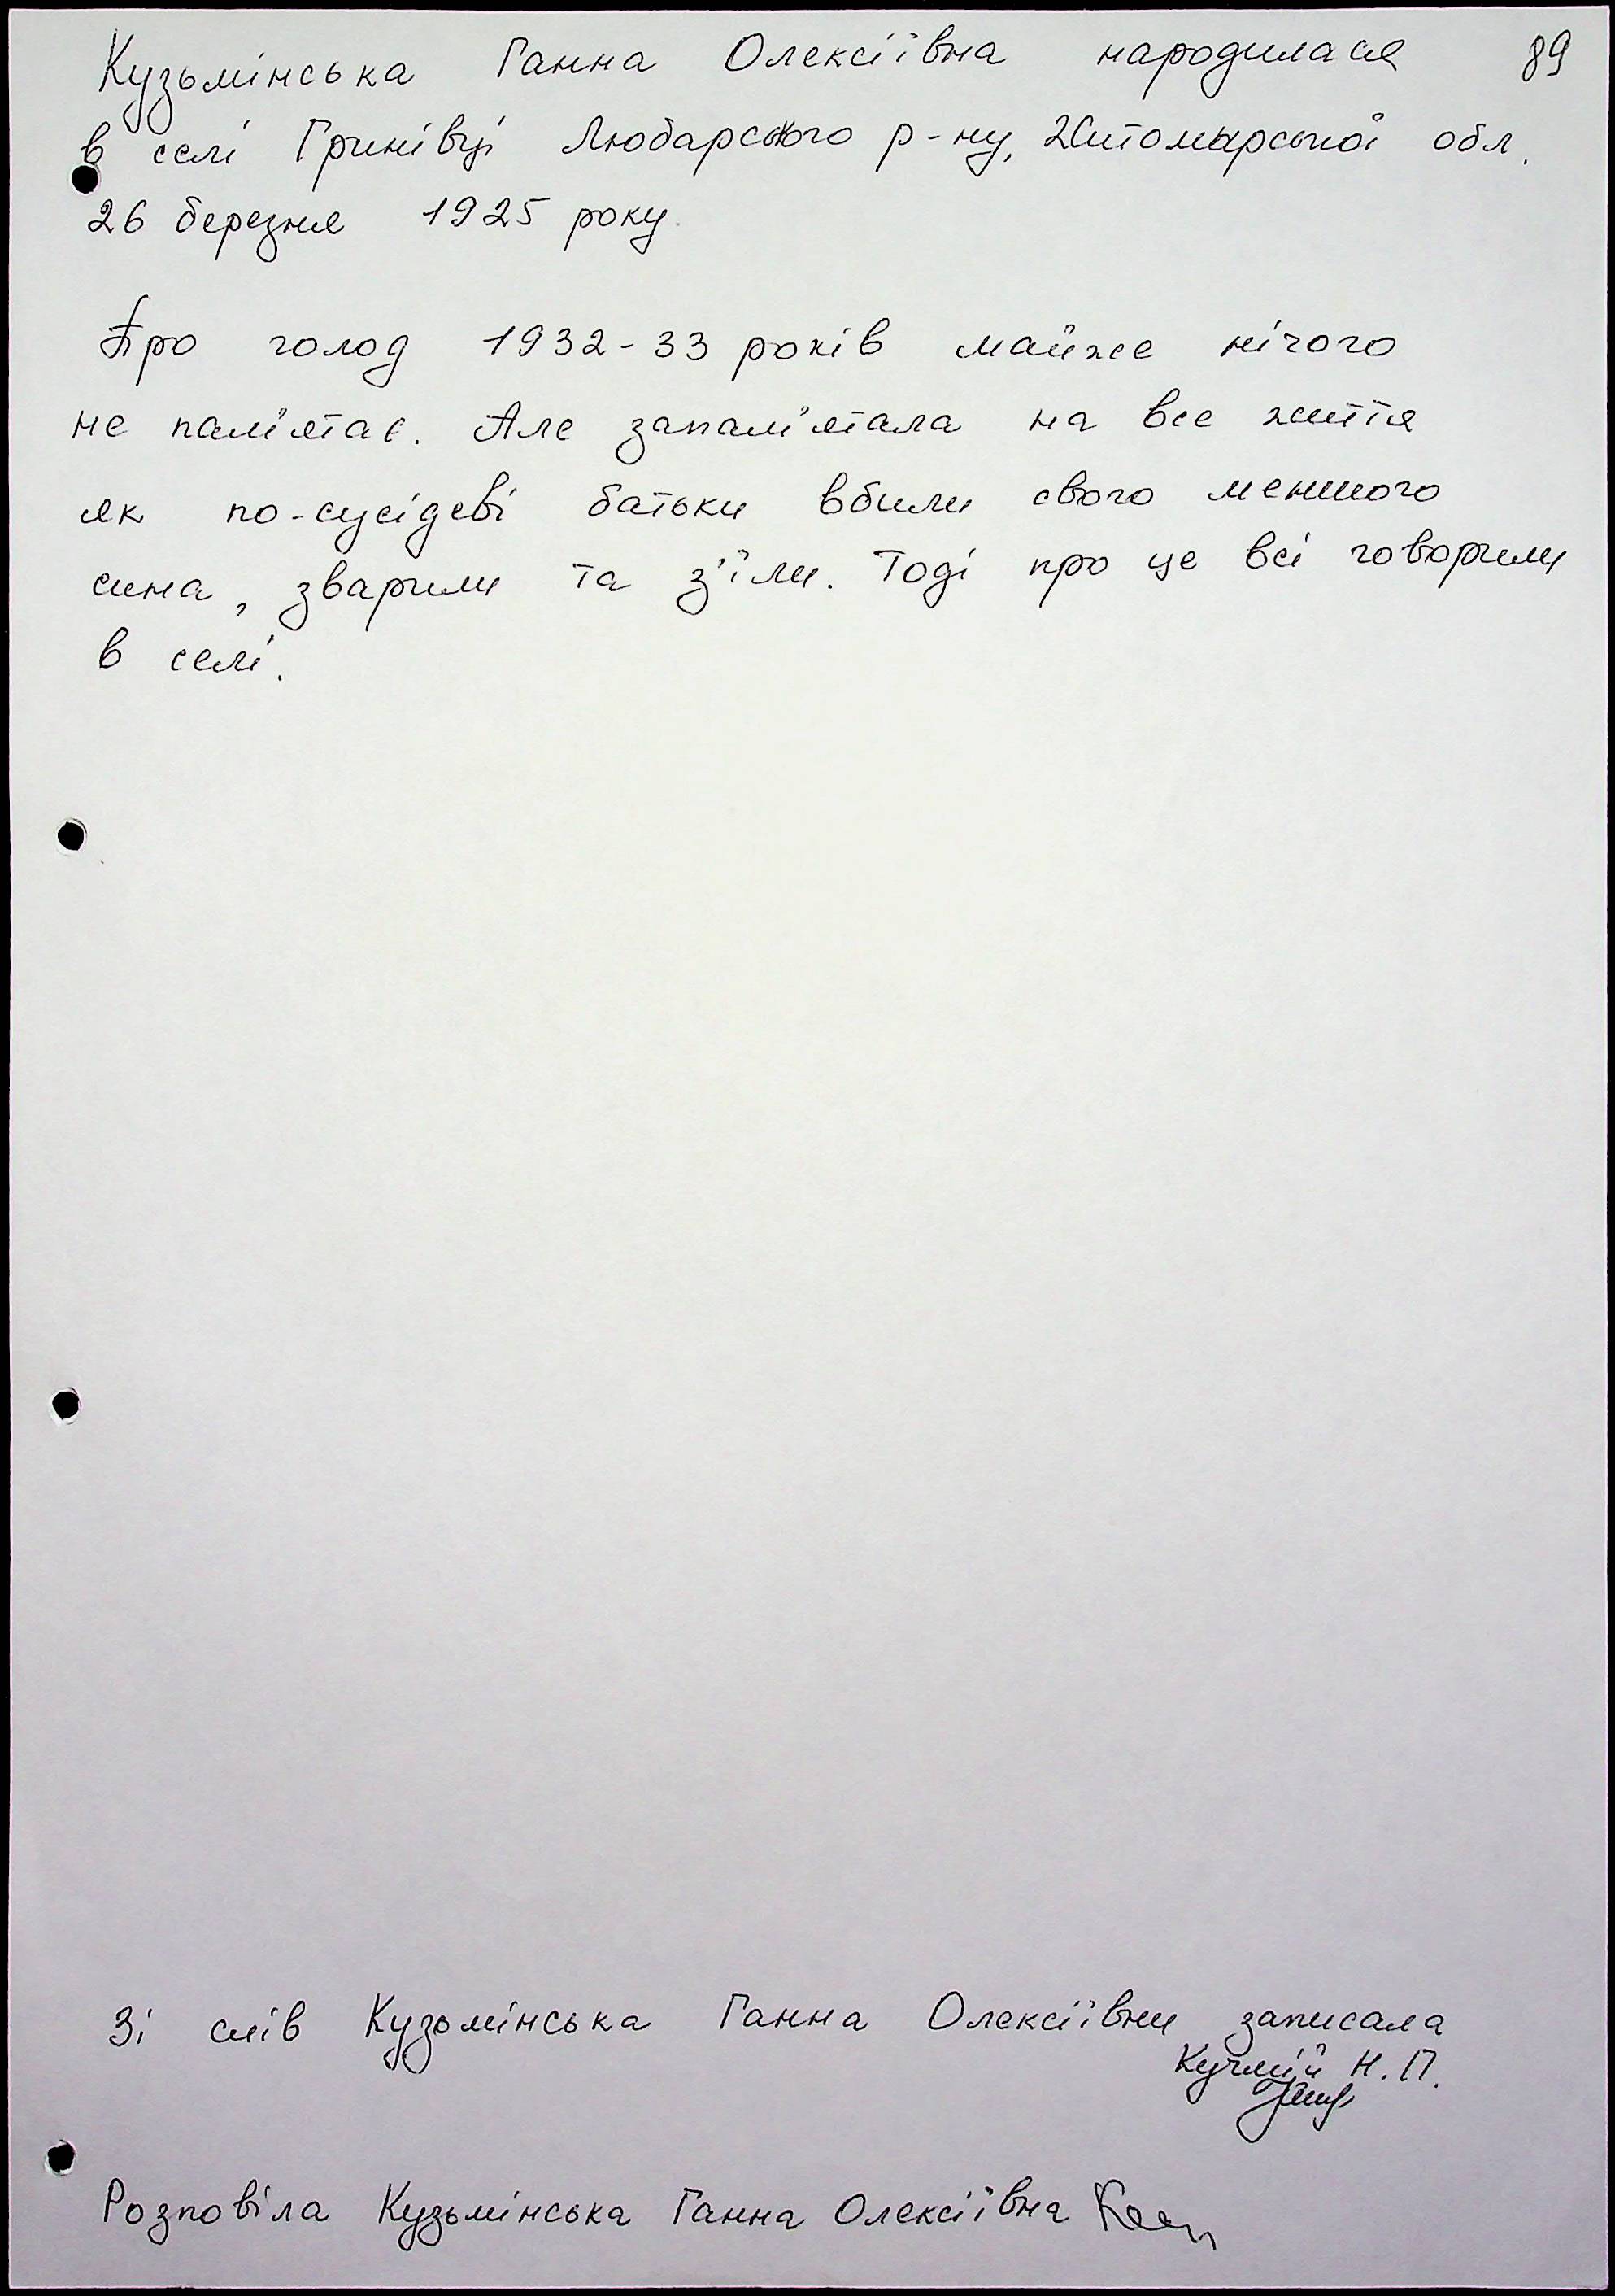 Кузьмінська Ганна Олексіївна народилася 89
в селі Гринівці Любарського р-ну, Житомирської обл.
26 березня 1925 року.
Про голод 1932-33 років майже нічого
не пам'ятає. Але запам'ятала на все життя
як по-сусідеві батьки вбили свого меншого
сина, зварили та з'їли. Тоді про це всі говорили
в селі.
Зі слів Кузьмінська Ганна Олексіївни записала
Кучмій Н.П.
Розповіла Кузьмінська Ганна Олексіївна